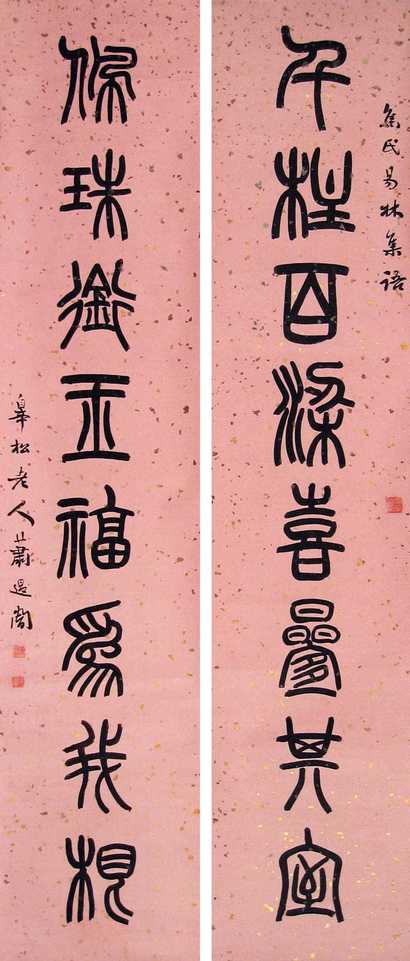 焦氏易林集語
千柱百梁喜疊其室
佩珠銜玉福為我根
皋松老人蕭退闇